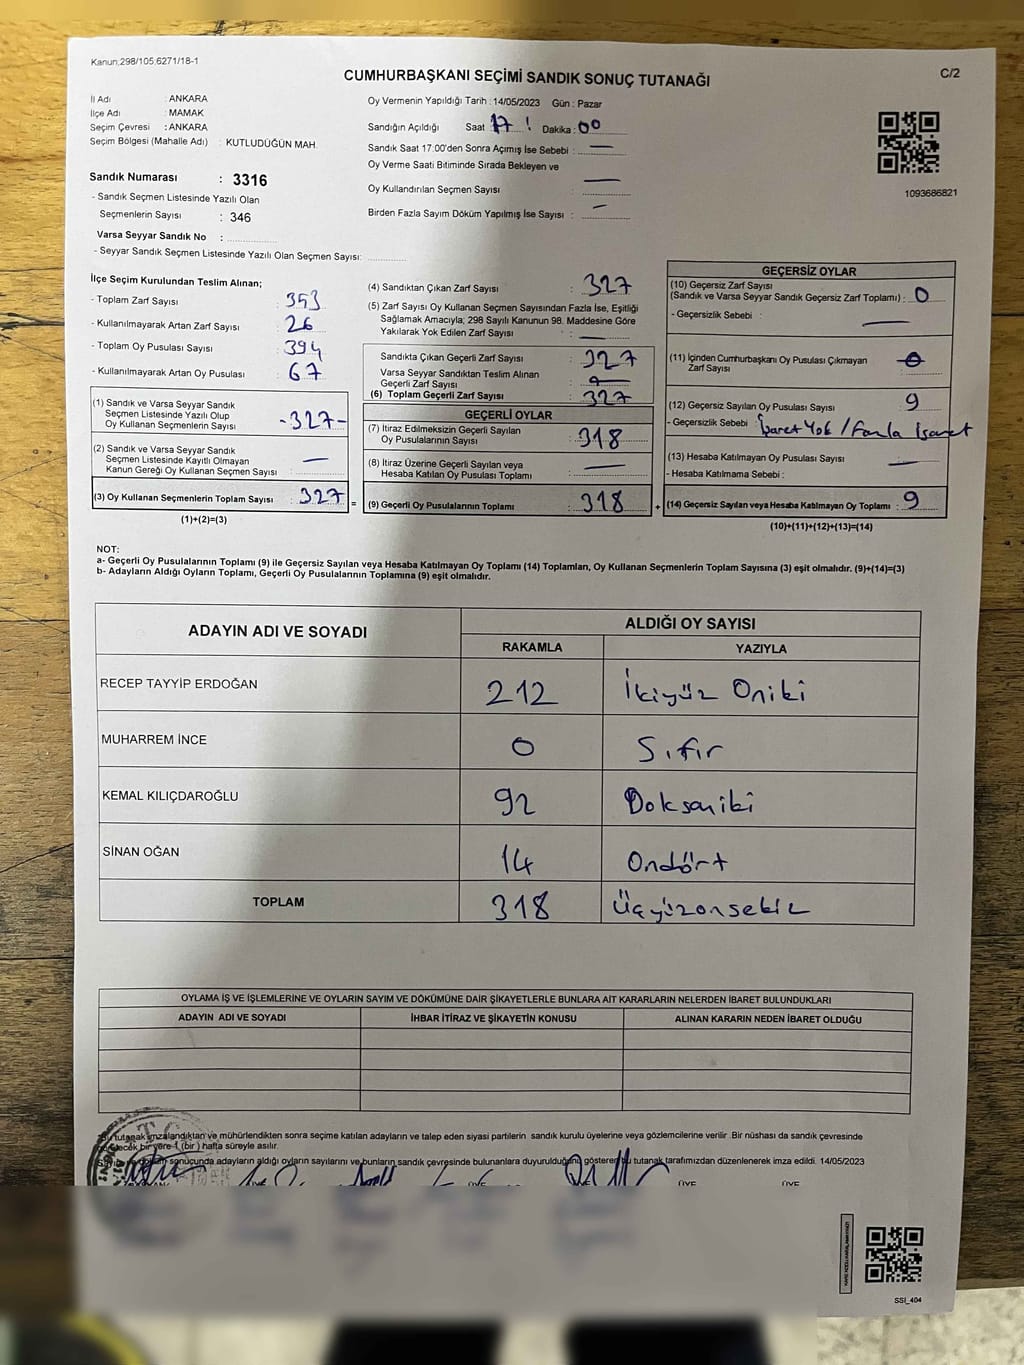 Kanun;298/105,6271/18-1
CUMHURBAŞKANI SEÇİMİ SANDIK SONUÇ TUTANAĞI
C/2
İl Adı : ANKARA
İlçe Adı : MAMAK
Seçim Çevresi : ANKARA
Seçim Bölgesi (Mahalle Adı) : KUTLUDÜĞÜN MAH.
Sandık Numarası : 3316
- Sandık Seçmen Listesinde Yazılı Olan
Seçmenlerin Sayısı : 346
Varsa Seyyar Sandık No :
- Seyyar Sandık Seçmen Listesinde Yazılı Olan Seçmen Sayısı:
Oy Vermenin Yapıldığı Tarih : 14/05/2023 Gün : Pazar
Sandığın Açıldığı Saat 17 : Dakika : 00
Sandık Saat 17:00'den Sonra Açımış İse Sebebi : —
Oy Verme Saati Bitiminde Sırada Bekleyen ve
Oy Kullandırılan Seçmen Sayısı : —
Birden Fazla Sayım Döküm Yapılmış İse Sayısı : —
1093686821
İlçe Seçim Kurulundan Teslim Alınan;
- Toplam Zarf Sayısı : 353
- Kullanılmayarak Artan Zarf Sayısı : 26
- Toplam Oy Pusulası Sayısı : 394
- Kullanılmayarak Artan Oy Pusulası : 67
(1) Sandık ve Varsa Seyyar Sandık
Seçmen Listesinde Yazılı Olup
Oy Kullanan Seçmenlerin Sayısı : -327-
(2) Sandık ve Varsa Seyyar Sandık
Seçmen Listesinde Kayıtlı Olmayan
Kanun Gereği Oy Kullanan Seçmen Sayısı : —
(3) Oy Kullanan Seçmenlerin Toplam Sayısı : 327 =
(1)+(2)=(3)
(4) Sandıktan Çıkan Zarf Sayısı : 327
(5) Zarf Sayısı Oy Kullanan Seçmen Sayısından Fazla İse, Eşitliği
Sağlamak Amacıyla; 298 Sayılı Kanunun 98. Maddesine Göre
Yakılarak Yok Edilen Zarf Sayısı : —
Sandıkta Çıkan Geçerli Zarf Sayısı : 327
Varsa Seyyar Sandıktan Teslim Alınan
Geçerli Zarf Sayısı :
(6) Toplam Geçerli Zarf Sayısı : 327
GEÇERLİ OYLAR
(7) İtiraz Edilmeksizin Geçerli Sayılan
Oy Pusulalarının Sayısı : 318
(8) İtiraz Üzerine Geçerli Sayılan veya
Hesaba Katılan Oy Pusulası Toplamı : —
(9) Geçerli Oy Pusulalarının Toplamı : 318 +
GEÇERSİZ OYLAR
(10) Geçersiz Zarf Sayısı
(Sandık ve Varsa Seyyar Sandık Geçersiz Zarf Toplamı) : 0
- Geçersizlik Sebebi : —
(11) İçinden Cumhurbaşkanı Oy Pusulası Çıkmayan
Zarf Sayısı : 0
(12) Geçersiz Sayılan Oy Pusulası Sayısı : 9
- Geçersizlik Sebebi : İşaret Yok / Fazla İşaret
(13) Hesaba Katılmayan Oy Pusulası Sayısı : —
- Hesaba Katılmama Sebebi :
(14) Geçersiz Sayılan veya Hesaba Katılmayan Oy Toplamı : 9
(10)+(11)+(12)+(13)=(14)
NOT:
a- Geçerli Oy Pusulalarının Toplamı (9) ile Geçersiz Sayılan veya Hesaba Katılmayan Oy Toplamı (14) Toplamları, Oy Kullanan Seçmenlerin Toplam Sayısına (3) eşit olmalıdır. (9)+(14)=(3)
b- Adayların Aldığı Oyların Toplamı, Geçerli Oy Pusulalarının Toplamına (9) eşit olmalıdır.
ADAYIN ADI VE SOYADI
ALDIĞI OY SAYISI
RAKAMLA YAZIYLA
RECEP TAYYİP ERDOĞAN 212 İkiyüz Oniki
MUHARREM İNCE 0 Sıfır
KEMAL KILIÇDAROĞLU 92 Doksaniki
SİNAN OĞAN 14 Ondört
TOPLAM 318 Üçyüzonsekiz
OYLAMA İŞ VE İŞLEMLERİNE VE OYLARIN SAYIM VE DÖKÜMÜNE DAİR ŞİKAYETLERLE BUNLARA AİT KARARLARIN NELERDEN İBARET BULUNDUKLARI
ADAYIN ADI VE SOYADI İHBAR İTİRAZ VE ŞİKAYETİN KONUSU ALINAN KARARIN NEDEN İBARET OLDUĞU
Bu tutanak imzalandıktan ve mühürlendikten sonra seçime katılan adayların ve talep eden siyasi partilerin sandık kurulu üyelerine veya gözlemcilerine verilir .Bir nüshası da sandık çevresinde
bir yere 1 (bir) hafta süreyle asılır.
sonuçunda adayların aldığı oyların sayılarını ve bunların sandık çevresinde bulunanlara duyurulduğunu gösteren bu tutanak tarafımızdan düzenlenerek imza edildi. 14/05/2023
ÜYE ÜYE ÜYE
SSİ_404